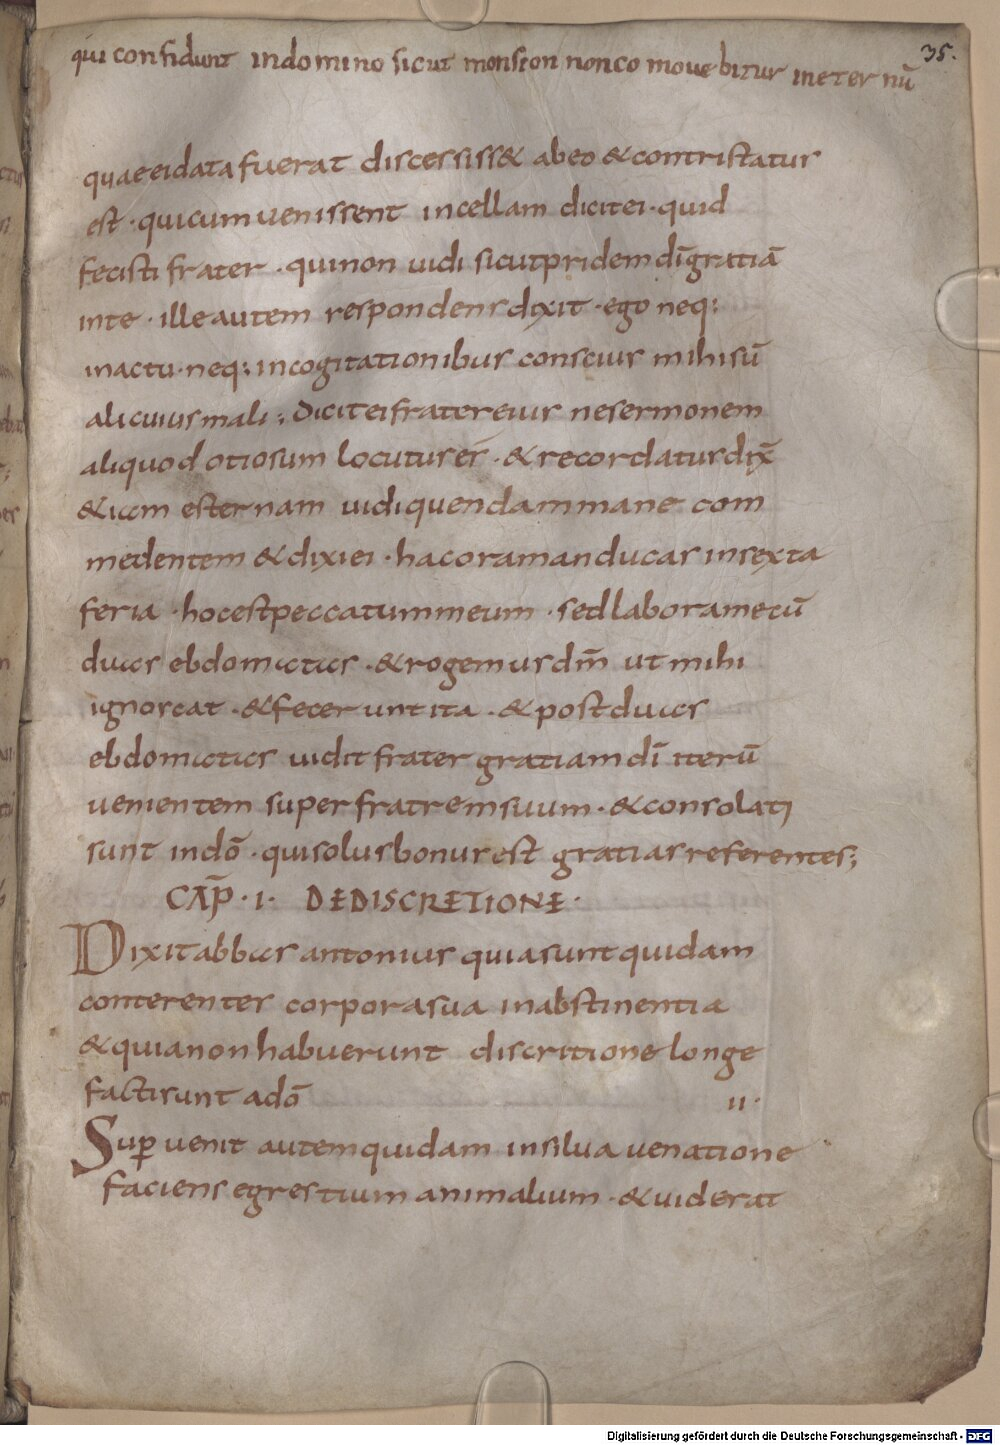 qui confidunt in domino sicut mons sion non co moue bitur in eter nū
35.
quae ei data fuerat discessiss& ab eo & contristatus
est · qui cum uenissent in cellam dicit ei · quid
fecisti frater · qui non uidi sicut pridem dī gratiā
in te · ille autem respondens dixit · ego neq;
in actu · neq; in cogitationibus conscius mihi sū
alicuius mali ; Dicit ei frater eius ne sermonem
aliquod otiosum locutus es · & recordatus dix̄
&iam esternam uidi quendam mane com
medentem & dixi ei · hac ora manducas in sexta
feria · hoc est peccatum meum · sed labora mecū
duas ebdomatas · & rogemus dm̄ ut mihi
ignoscat · & fecerunt ita · & post duas
ebdomatas uidit frater gratiam dī iterū
uenientem super fratrem suum · & consolati
sunt in dō · qui solus bonus est gratias referentes;
CAP̄ · I · DE DISCRETIONE ·
Dixit abbas antonius quia sunt quidam
conterentes corpora sua in abstinentia
& quia non habuerunt discritione longe
facti sunt a dō
II ·
Sup̱ uenit autem quidam in silua uenatione
faciens egrestium animalium · & uiderat
Digitalisierung gefördert durch die Deutsche Forschungsgemeinschaft - DFG